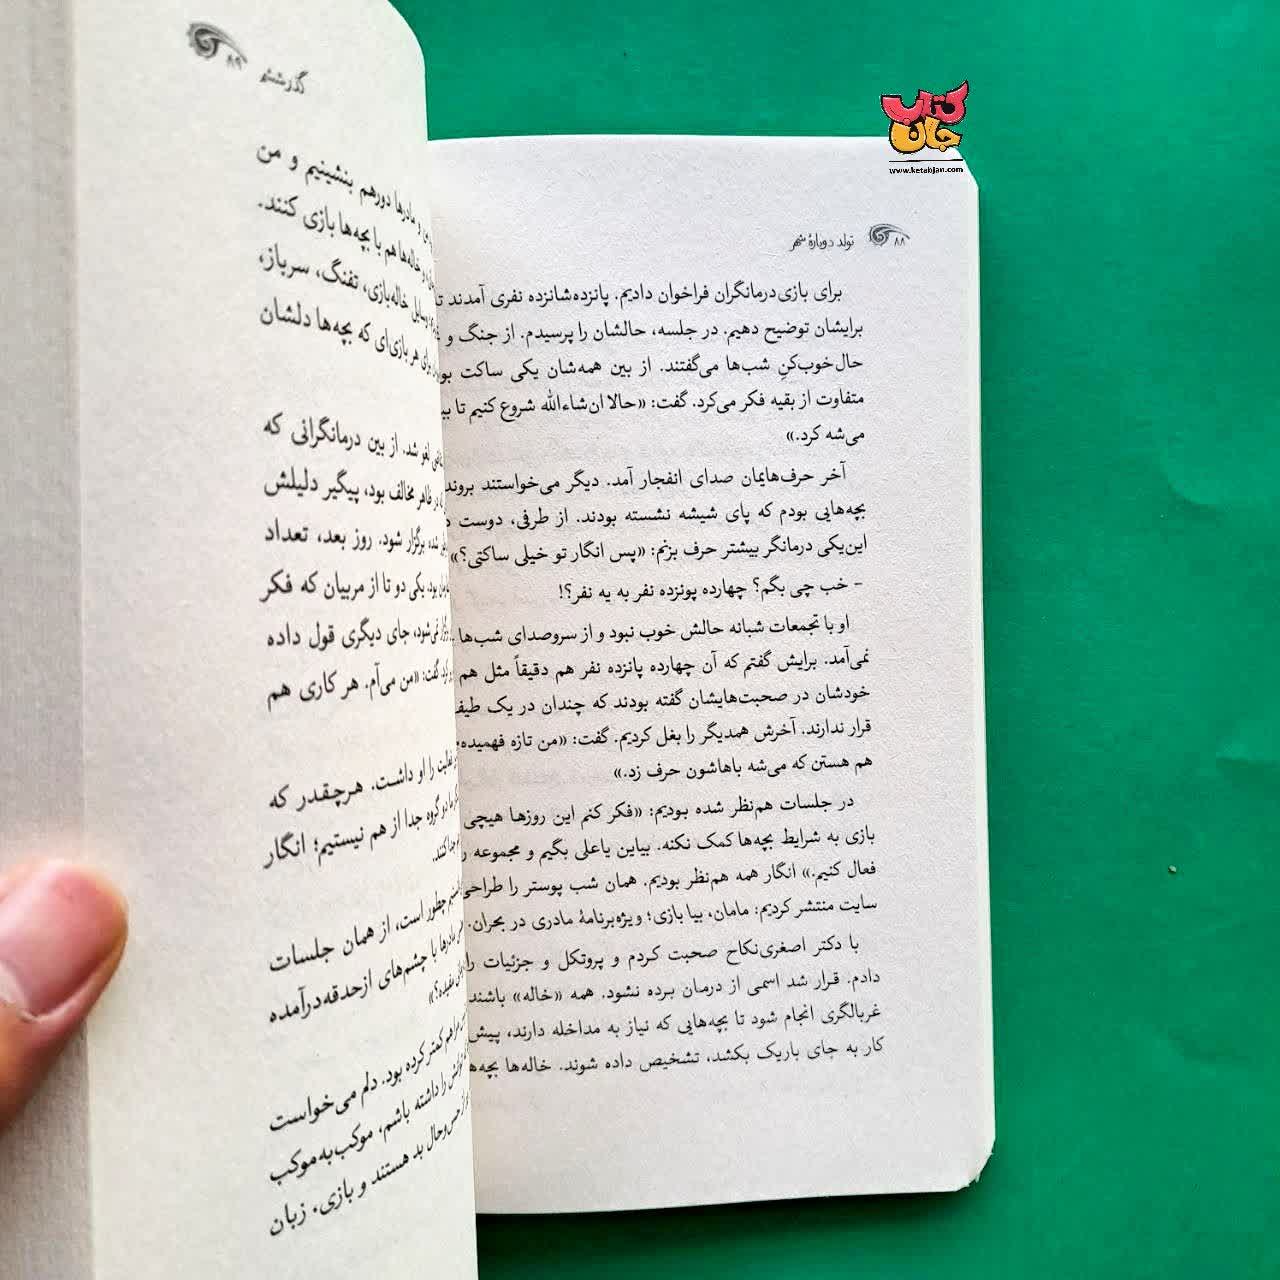 کتاب
جان
www.ketabjan.com
۸۸ تولد دوبارهٔ شهر
برای بازی‌درمانگران فراخوان دادیم. پانزده‌شانزده نفری آمدند تا
برایشان توضیح دهیم. در جلسه، حالشان را پرسیدم. از جنگ و
حال‌خوب‌کنِ شب‌ها می‌گفتند. از بین همه‌شان یکی ساکت
متفاوت از بقیه فکر می‌کرد. گفت: «حالا ان‌شاءالله شروع کنیم تا
می‌شه کرد.»
آخر حرف‌هایمان صدای انفجار آمد. دیگر می‌خواستند بروند
بچه‌هایی بودم که پای شیشه نشسته بودند. از طرفی، دوست
این‌یکی درمانگر بیشتر حرف بزنم: «پس انگار تو خیلی ساکتی؟»
- خب چی بگم؟ چهارده پونزده نفر به یه نفر؟!
او با تجمعات شبانه حالش خوب نبود و از سروصدای شب‌ها
نمی‌آمد. برایش گفتم که آن چهارده پانزده نفر هم دقیقاً مثل هم
خودشان در صحبت‌هایشان گفته بودند که چندان در یک طیف
قرار ندارند. آخرش همدیگر را بغل کردیم. گفت: «من تازه فهمیده
هم هستن که می‌شه باهاشون حرف زد.»
در جلسات هم‌نظر شده بودیم: «فکر کنم این روزها هیچی
بازی به شرایط بچه‌ها کمک نکنه. بیاین یاعلی بگیم و مجموعه
فعال کنیم.» انگار همه هم‌نظر بودیم. همان شب پوستر را طراحی
سایت منتشر کردیم: مامان، بیا بازی؛ ویژه‌برنامهٔ مادری در بحران.
با دکتر اصغری‌نکاح صحبت کردم و پروتکل و جزئیات را
دادم. قرار شد اسمی از درمان برده نشود. همه «خاله» باشند
غربالگری انجام شود تا بچه‌هایی که نیاز به مداخله دارند، پیش
کار به جای باریک بکشد، تشخیص داده شوند. خاله‌ها
گذرشش ۸۹
و مادرها دورهم بنشینیم و من
و خاله‌ها هم با بچه‌ها بازی کنند.
وسایل خاله‌بازی، تفنگ، سرباز،
برای هر بازی‌ای که بچه‌ها دلشان
لغو شد. از بین درمانگرانی که
در ظاهر مخالف بود، پیگیر دلیلش
شد، برگزار شود. روز بعد، تعداد
بود، یکی دو تا از مربیان که فکر
نمی‌شود، جای دیگری قول داده
گفت: «من می‌آم. هر کاری هم
فعالیت را او داشت. هرچقدر که
ما دو گروه جدا از هم نیستیم؛ انگار
جدا کنند.
چطور است، از همان جلسات
مادرها با چشم‌های ازحدقه‌درآمده
مفیده؟»
هم کمتر کرده بود. دلم می‌خواست
را داشته باشم، موکب‌به‌موکب
از حس‌وحال بد هستند و بازی، زبان